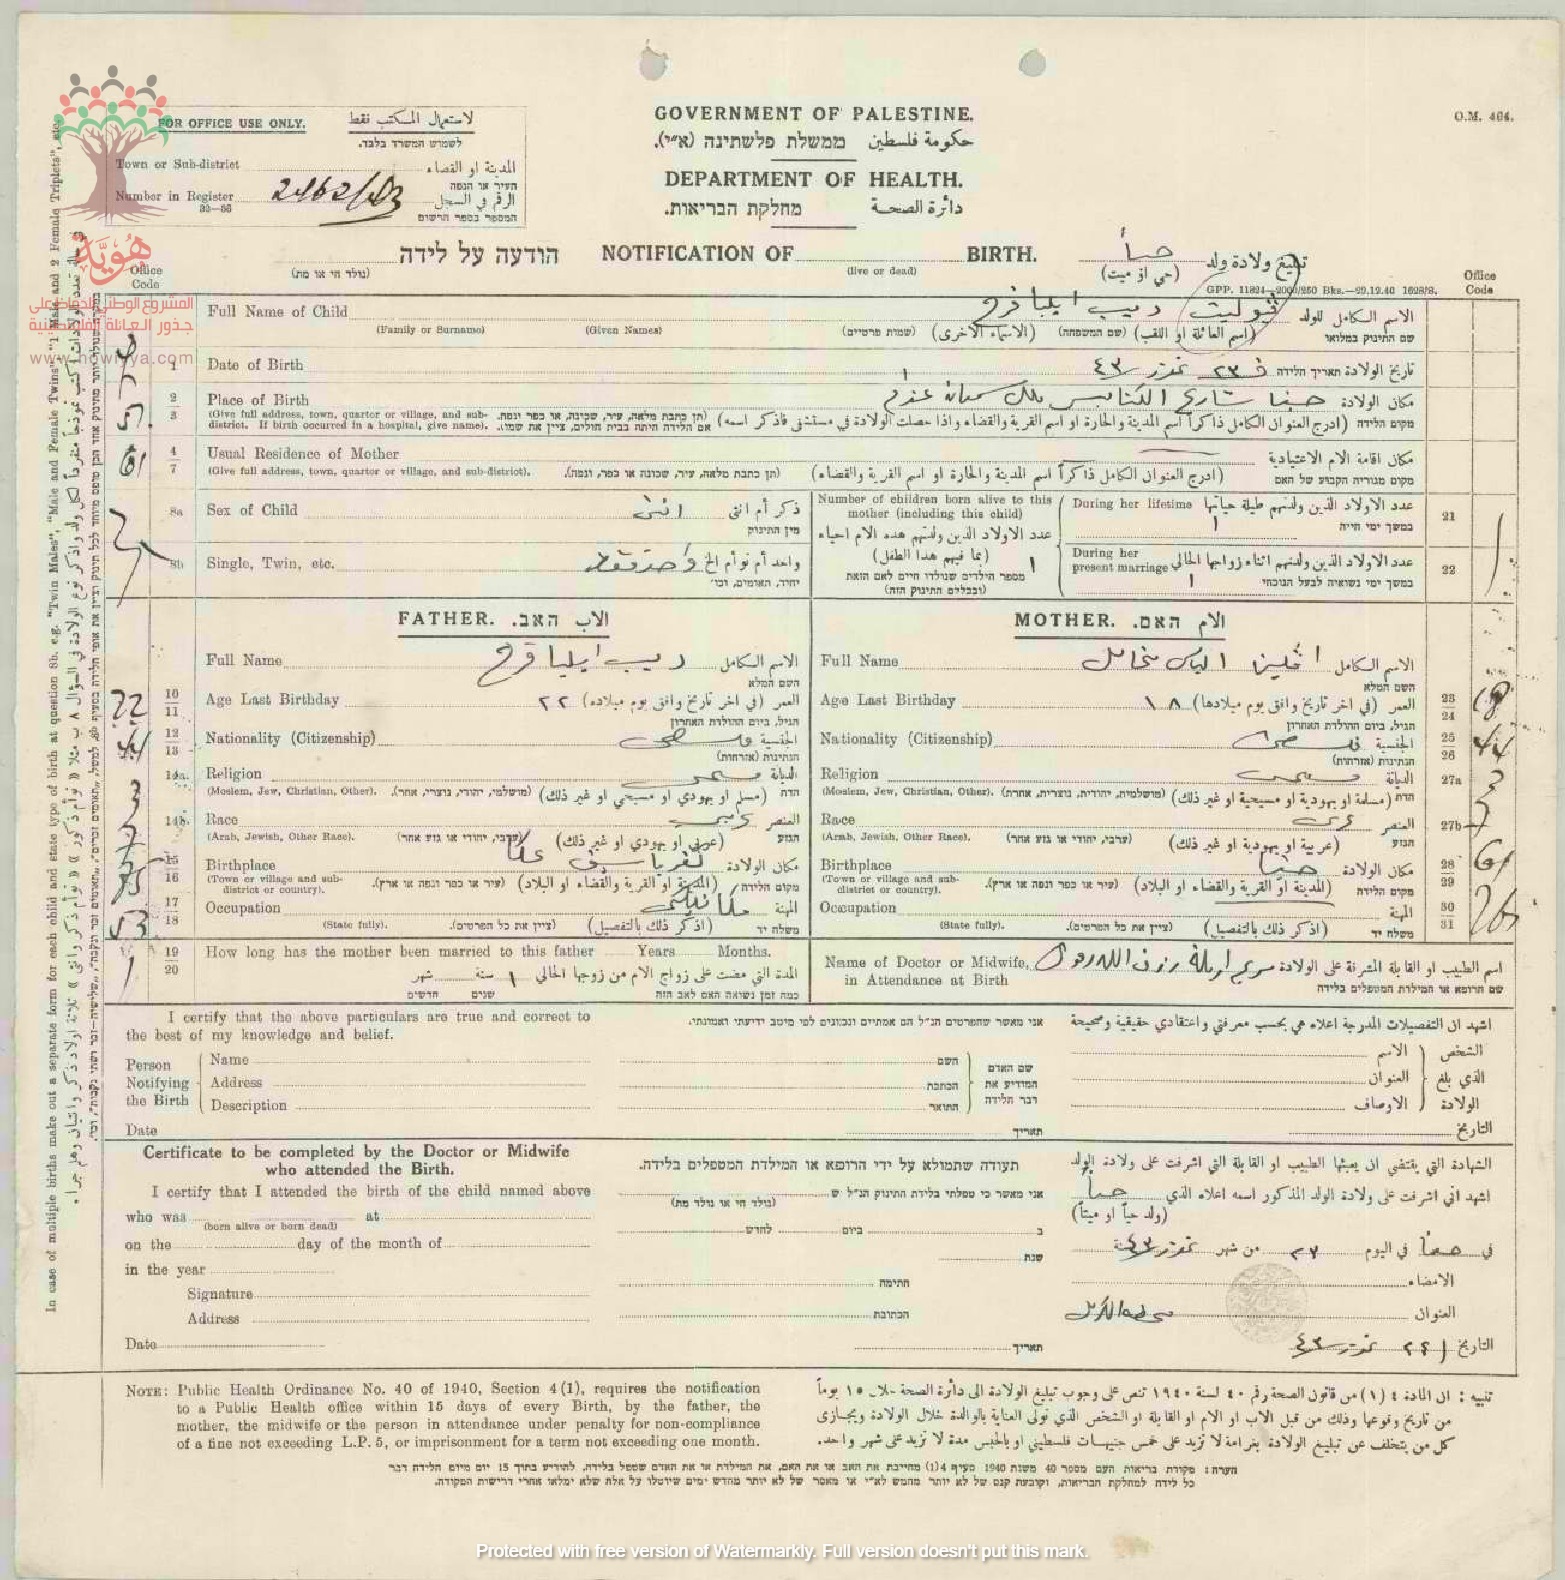 O.M. 494.
GOVERNMENT OF PALESTINE.
حكومة فلسطين ממשלת פלשתינה (א״י).
DEPARTMENT OF HEALTH.
دائرة الصحة מחלקת הבריאות.
FOR OFFICE USE ONLY. لاستعمال المكتب فقط
לשמוש המשרד בלבד.
Town or Sub-district المدينة او القضاء
העיר או הנפה
Number in Register 2462/43 الرقم في السجل
המספר בספר הרשום
هوية
المشروع الوطني للحفاظ على
جذور العائلة الفلسطينية
www.howiyya.com
הודעה על לידה NOTIFICATION OF BIRTH. حياً تبليغ ولادة ولد
(נולד חי או מת) (live or dead) (حي او ميت)
GPP. 11824—2000/250 Bks.—29.12.40 1628/S.
Office Code
Office Code
Full Name of Child ديب ايليا فرح الاسم الكامل للولد
(Family or Surname) (Given Names) (שמות פרטיים) (الاسماء الاخرى) (שם המשפחה) (اسم العائلة او اللقب) שם התינוק במלואו
1 Date of Birth ٢٣ تموز ٤٣ تاريخ الولادة תאריך הלידה
2 3 Place of Birth حيفا شارع الكنايس ملك سمعان مكان الولادة
(Give full address, town, quarter or village, and sub-district. If birth occurred in a hospital, give name). (תן כתבת מלאה, עיר, שכונה, או כפר ונפה. אם הלידה היתה בבית חולים, ציין את שמו). (ادرج العنوان الكامل ذاكراً اسم المدينة والحارة او اسم القرية والقضاء واذا حصلت الولادة في مستشفى فاذكر اسمه) מקום הלידה
4 7 Usual Residence of Mother مكان اقامة الام الاعتيادية
(Give full address, town, quarter or village, and sub-district). (תן כתבת מלאה, עיר, שכונה או כפר, ונפה). (ادرج العنوان الكامل ذاكراً اسم المدينة والحارة او اسم القرية والقضاء) מקום מגוריה הקבוע של האם
8a Sex of Child انثى ذكر أم انثى
מין התינוק
8b Single, Twin, etc. واحد فقط واحد أم توأم الخ
יחיד, תאומים, וכו׳
Number of children born alive to this mother (including this child)
عدد الاولاد الذين ولدتهم هذه الام احياء
(بما فيهم هذا الطفل) ١
מספר הילדים שנולדו חיים לאם הזאת
(ובכללם התינוק הזה)
During her lifetime عدد الاولاد الذين ولدتهم طيلة حياتها 21
١ במשך ימי חייה
During her present marriage عدد الاولاد الذين ولدتهم اثناء زواجها الحالي 22
١ במשך ימי נשואיה לבעל הנוכחי
FATHER. الاب האב.
Full Name ديب ايليا فرح الاسم الكامل
השם המלא
10 11 Age Last Birthday ٢٢ العمر (في اخر تاريخ وافق يوم ميلاده)
הגיל, ביום ההולדת האחרון
12 13 Nationality (Citizenship) فلسطيني الجنسية
הנתינות (אזרחות)
14a. Religion مسيحي الديانة
(Moslem, Jew, Christian, Other). (מושלמי, יהודי, נוצרי, אחר). (مسلم او يهودي او مسيحي او غير ذلك) הדת
14b. Race عربي العنصر
(Arab, Jewish, Other Race). (ערבי, יהודי או גזע אחר) (عربي او يهودي او غير ذلك) הגזע
15 16 Birthplace كفرياسيف عكا مكان الولادة
(Town or village and sub-district or country). (עיר או כפר ונפה או ארץ). (المدينة او القرية والقضاء او البلاد) מקום הלידה
17 18 Occupation مكانيكي المهنة
(State fully). (ציין את כל הפרטים). (اذكر ذلك بالتفصيل) משלח יד
19 20 How long has the mother been married to this father Years Months.
المدة التي مضت على زواج الام من زوجها الحالي ١ سنة شهر
כמה זמן נשואה האם לאב הזה שנים חדשים
MOTHER. الام האם.
Full Name افلين الياس مخايل الاسم الكامل
השם המלא
Age Last Birthday ١٨ العمر (في اخر تاريخ وافق يوم ميلادها) 23 24
הגיל, ביום ההולדת האחרון
Nationality (Citizenship) الجنسية 25 26
הנתינות (אזרחות)
Religion مسيحي الديانة 27a
(Moslem, Jew, Christian, Other). (מושלמית, יהודית, נוצרית, אחרת). (مسلمة او يهودية او مسيحية او غير ذلك) הדת
Race عربي العنصر 27b
(Arab, Jewish, Other Race). (ערבי, יהודי או גזע אחר) (عربية او يهودية او غير ذلك) הגזע
Birthplace حيفا مكان الولادة 28 29
(Town or village and sub-district or country). (עיר או כפר ונפה או ארץ). (المدينة او القرية والقضاء او البلاد) מקום הלידה
Occupation المهنة 30 31
(State fully). (ציין את כל הפרטים). (اذكر ذلك بالتفصيل) משלח יד
Name of Doctor or Midwife, in Attendance at Birth رزق الله اسم الطبيب او القابلة المشرفة على الولادة
שם הרופא או המילדת המטפלים בלידה
I certify that the above particulars are true and correct to the best of my knowledge and belief.
אני מאשר שהפרטים הנ״ל הם אמתיים ונכונים לפי מיטב ידיעתי ואמונתי.
اشهد ان التفصيلات المدرجة اعلاه هي بحسب معرفتي واعتقادي حقيقية وصحيحة
Person Notifying the Birth
Name השם الاسم
Address הכתבת العنوان
Description התואר الاوصاف
שם האדם המודיע את דבר הלידה
الشخص الذي بلغ الولادة
Date תאריך التاريخ
Certificate to be completed by the Doctor or Midwife who attended the Birth.
תעודה שתמולא על ידי הרופא או המילדת המטפלים בלידה.
الشهادة التي يقتضي ان يعبئها الطبيب او القابلة التي اشرفت على ولادة الولد
I certify that I attended the birth of the child named above
who was at
(born alive or born dead)
on the day of the month of
in the year
Signature
Address
Date
אני מאשר כי טפלתי בלידת התינוק הנ״ל ש
(נולד חי או נולד מת)
ב ביום לחדש
שנת
חתימה
הכתובת
תאריך
اشهد اني اشرفت على ولادة الولد المذكور اسمه اعلاه الذي حياً
(ولد حياً او ميتاً)
في حيفا في اليوم ٢٣ من شهر تموز سنة ٤٣
الامضاء
العنوان
التاريخ تموز ٤٣
NOTE: Public Health Ordinance No. 40 of 1940, Section 4(1), requires the notification
to a Public Health office within 15 days of every Birth, by the father, the
mother, the midwife or the person in attendance under penalty for non-compliance
of a fine not exceeding L.P. 5, or imprisonment for a term not exceeding one month.
تنبيه: ان المادة ٤ (١) من قانون الصحة رقم ٤٠ لسنة ١٩٤٠ تنص على وجوب تبليغ الولادة الى دائرة الصحة خلال ١٥ يوماً
من تاريخ وقوعها وذلك من قبل الاب او الام او القابلة او الشخص الذي تولى العناية بالوالدة خلال الولادة ويجازى
كل من يتخلف عن تبليغ الولادة بغرامة لا تزيد على خمس جنيهات فلسطيني او بالحبس مدة لا تزيد على شهر واحد.
הערה: פקודת בריאות העם מספר 40 משנת 1940 סעיף 4(1) מחייבת את האב או את האם, את המילדת או את האדם שטפל בלידה, להודיע בתוך 15 יום מיום הלידה דבר
כל לידה למחלקת הבריאות, וקובעת קנס של לא יותר מחמש לא״י או מאסר של לא יותר מחדש ימים שיוטלו על אלה שלא ימלאו אחרי דרישות הפקודה.
In case of multiple births make out a separate form for each child and state type of birth at question 8b. e.g. "Twin Males", "Male and Female Twins", "1 Male and 2 Female Triplets", etc.
Protected with free version of Watermarkly. Full version doesn't put this mark.